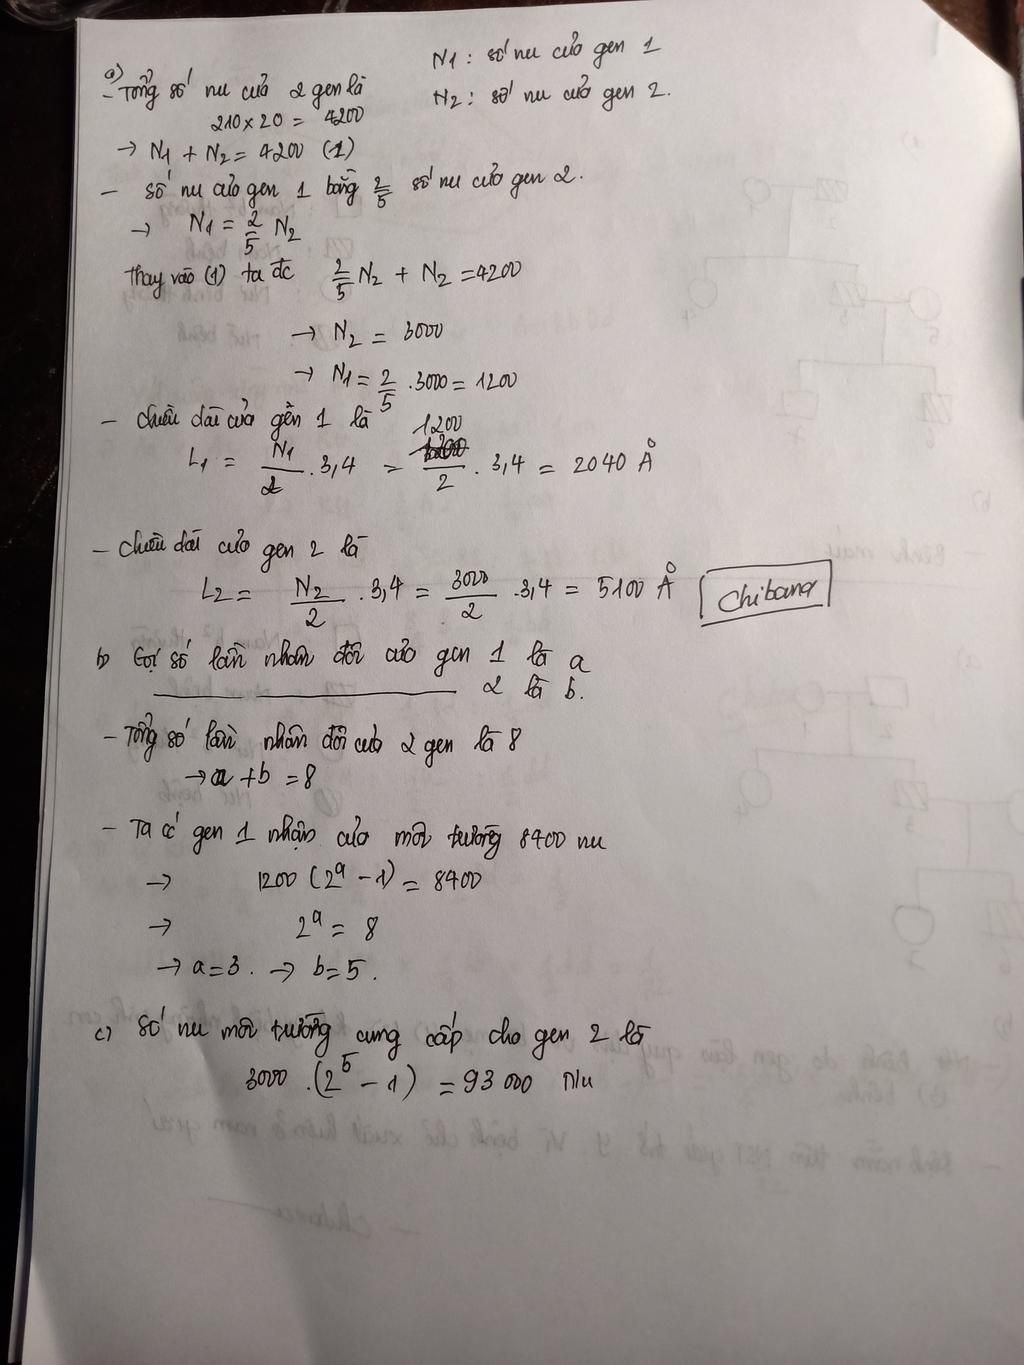 a)
- Tổng số nu của 2 gen là
210 x 20 = 4200
N1 : số nu của gen 1
N2 : số nu của gen 2.
→ N1 + N2 = 4200 (1)
- số nu của gen 1 bằng 2/5 số nu của gen 2.
→ N1 = 2/5 N2
Thay vào (1) ta đc 2/5 N2 + N2 = 4200
→ N2 = 3000
→ N1 = 2/5 . 3000 = 1200
- chiều dài của gen 1 là
L1 = N1/2 . 3,4 = 1200/2 . 3,4 = 2040 Å
- chiều dài của gen 2 là
L2 = N2/2 . 3,4 = 3000/2 . 3,4 = 5100 Å
Chibana
b) Gọi số lần nhân đôi của gen 1 là a
2 là b.
- Tổng số lần nhân đôi của 2 gen là 8
→ a + b = 8
- Ta có gen 1 nhận của môi trường 8400 nu
→ 1200 (2^a - 1) = 8400
→ 2^a = 8
→ a = 3. → b = 5.
c) số nu môi trường cung cấp cho gen 2 là
3000 . (2^5 - 1) = 93 000 nu